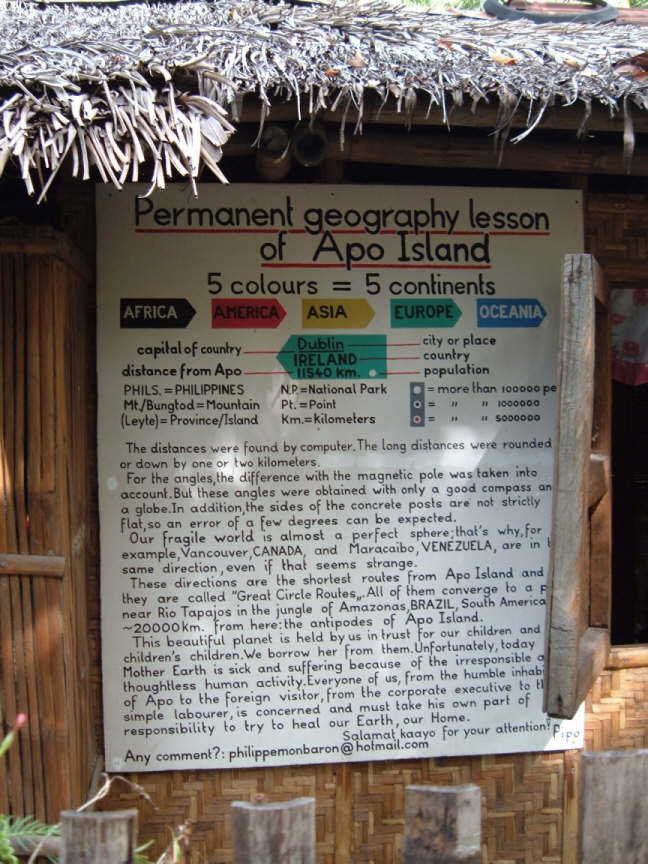 Permanent geography lesson
of Apo Island
5 colours = 5 continents
AFRICA AMERICA ASIA EUROPE OCEANIA
capital of country Dublin city or place
IRELAND country
distance from Apo 11540 km. population
PHILS. = PHILIPPINES N.P. = National Park = more than 100000 pe
Mt./Bungtod = Mountain Pt. = Point = " " 1000000
(Leyte) = Province/Island Km. = Kilometers = " " 5000000
The distances were found by computer. The long distances were rounded
or down by one or two kilometers.
For the angles, the difference with the magnetic pole was taken into
account. But these angles were obtained with only a good compass an
a globe. In addition, the sides of the concrete posts are not strictly
flat, so an error of a few degrees can be expected.
Our fragile world is almost a perfect sphere; that's why, for
example, Vancouver, CANADA, and Maracaibo, VENEZUELA, are in t
same direction, even if that seems strange.
These directions are the shortest routes from Apo Island and
they are called "Great Circle Routes„. All of them converge to a p
near Rio Tapajos in the jungle of Amazonas, BRAZIL, South America
~20000 km. from here: the antipodes of Apo Island.
This beautiful planet is held by us in trust for our children and
children's children. We borrow her from them. Unfortunately, today
Mother Earth is sick and suffering because of the irresponsible a
thoughtless human activity. Everyone of us, from the humble inhabi
of Apo to the foreign visitor, from the corporate executive to th
simple labourer, is concerned and must take his own part of
responsibility to try to heal our Earth, our Home.
Salamat kaayo for your attention!
Any comment?: philippemonbaron@hotmail.com